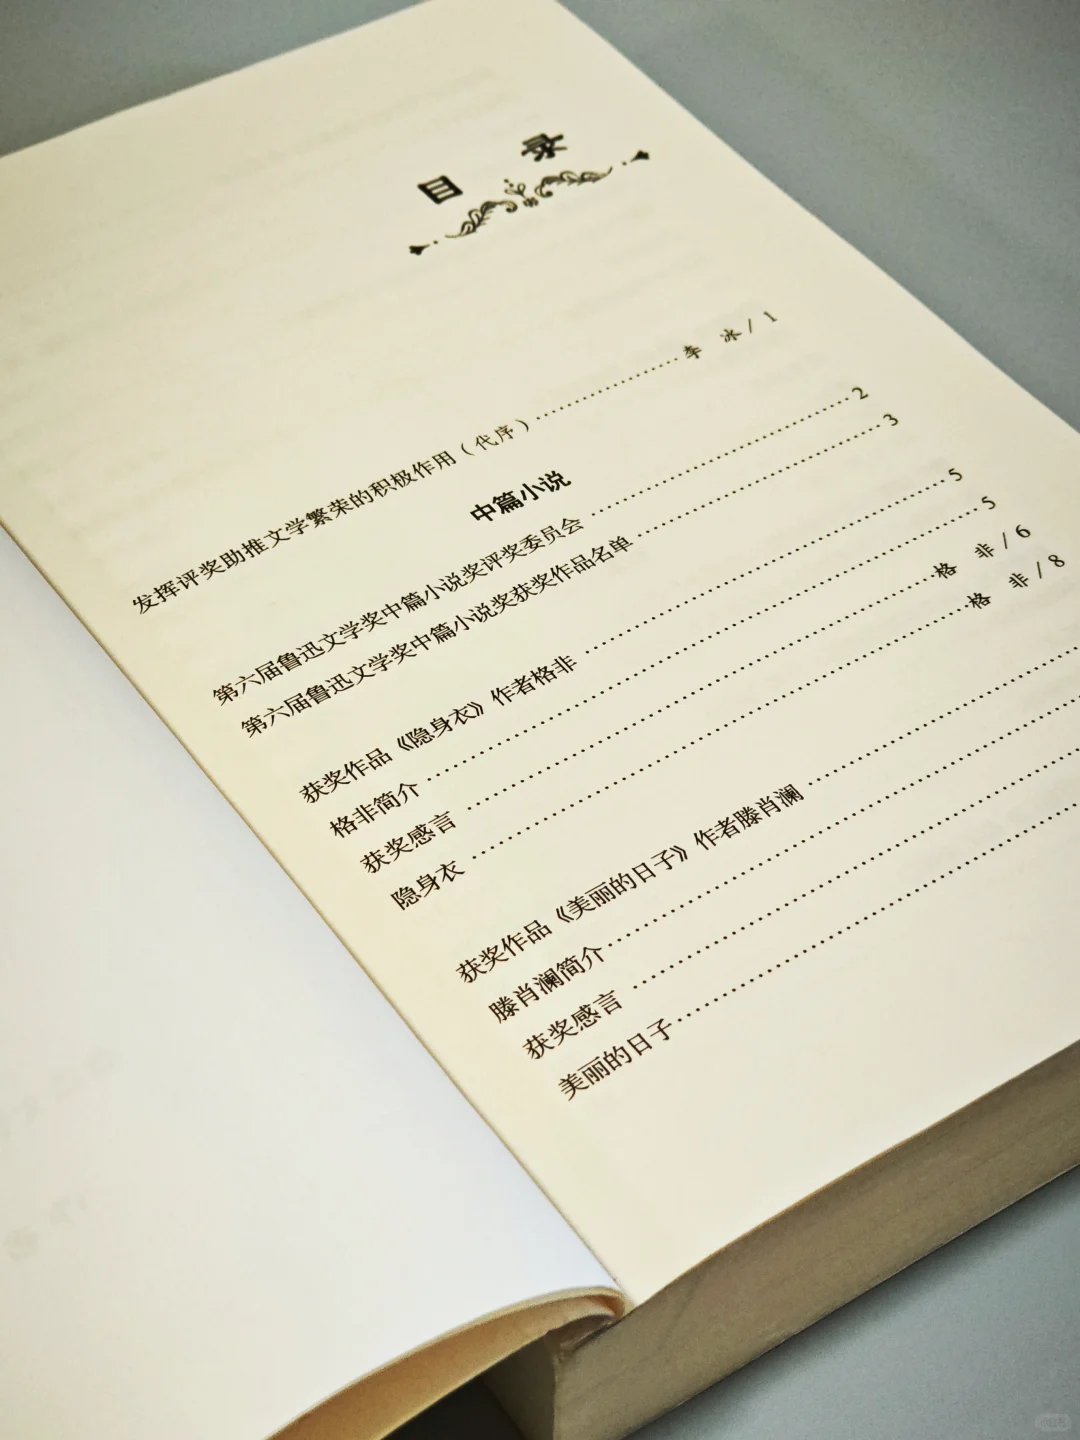 目 录
发挥评奖助推文学繁荣的积极作用（代序）…………………李 冰 / 1
中篇小说
第六届鲁迅文学奖中篇小说奖评奖委员会…………………2
第六届鲁迅文学奖中篇小说奖获奖作品名单…………………3
获奖作品《隐身衣》作者格非…………………5
格非简介…………………5
获奖感言…………………格 非 / 6
隐身衣…………………格 非 / 8
获奖作品《美丽的日子》作者滕肖澜…………………
滕肖澜简介…………………
获奖感言…………………
美丽的日子…………………